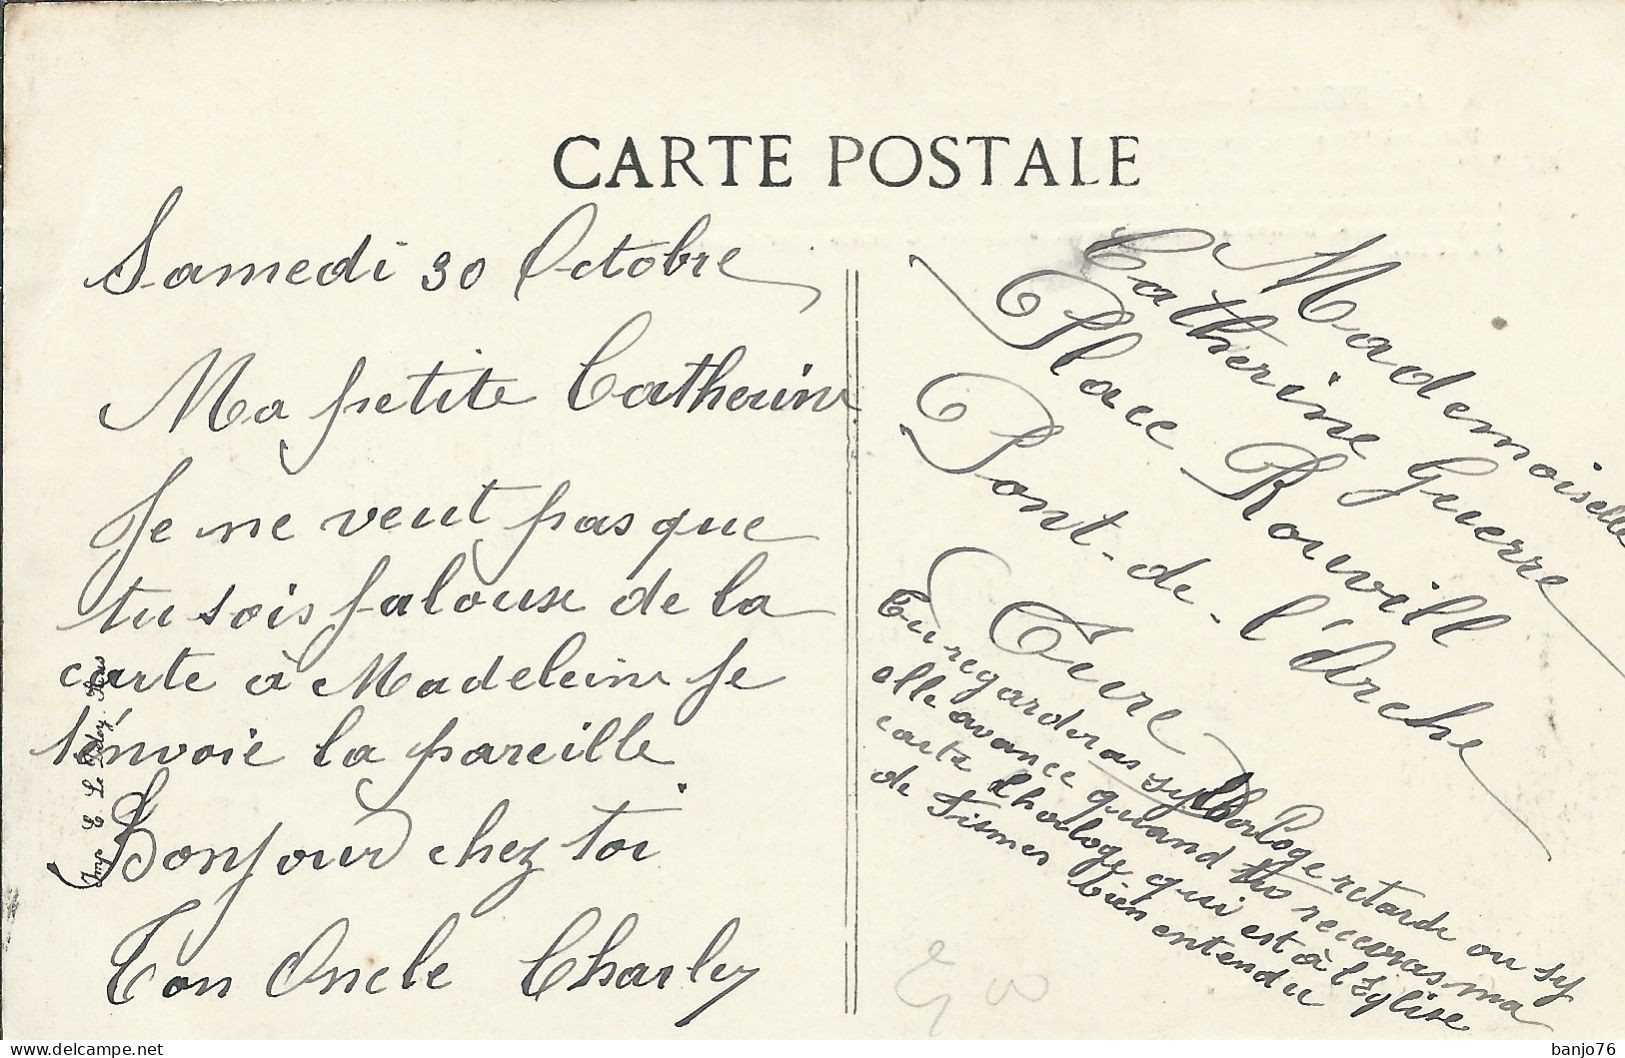 CARTE POSTALE
Samedi 30 Octobre
Ma petite Catherine
Je ne veut pas que
tu sois jalouse de la
carte à Madeleine je
t'envoie la pareille.
Bonjour chez toi
Ton Oncle Charley
Mademoiselle
Catherine Guerre
Place Rouvill
Pont-de-l'Arche
Eure
Tu regarderas sy l'horloge retarde ou sy
elle avance quand tu receveras ma
carte l'horloge qui est à l'Eglise
de Fismes bien entendu
Imp E Le
banjo76